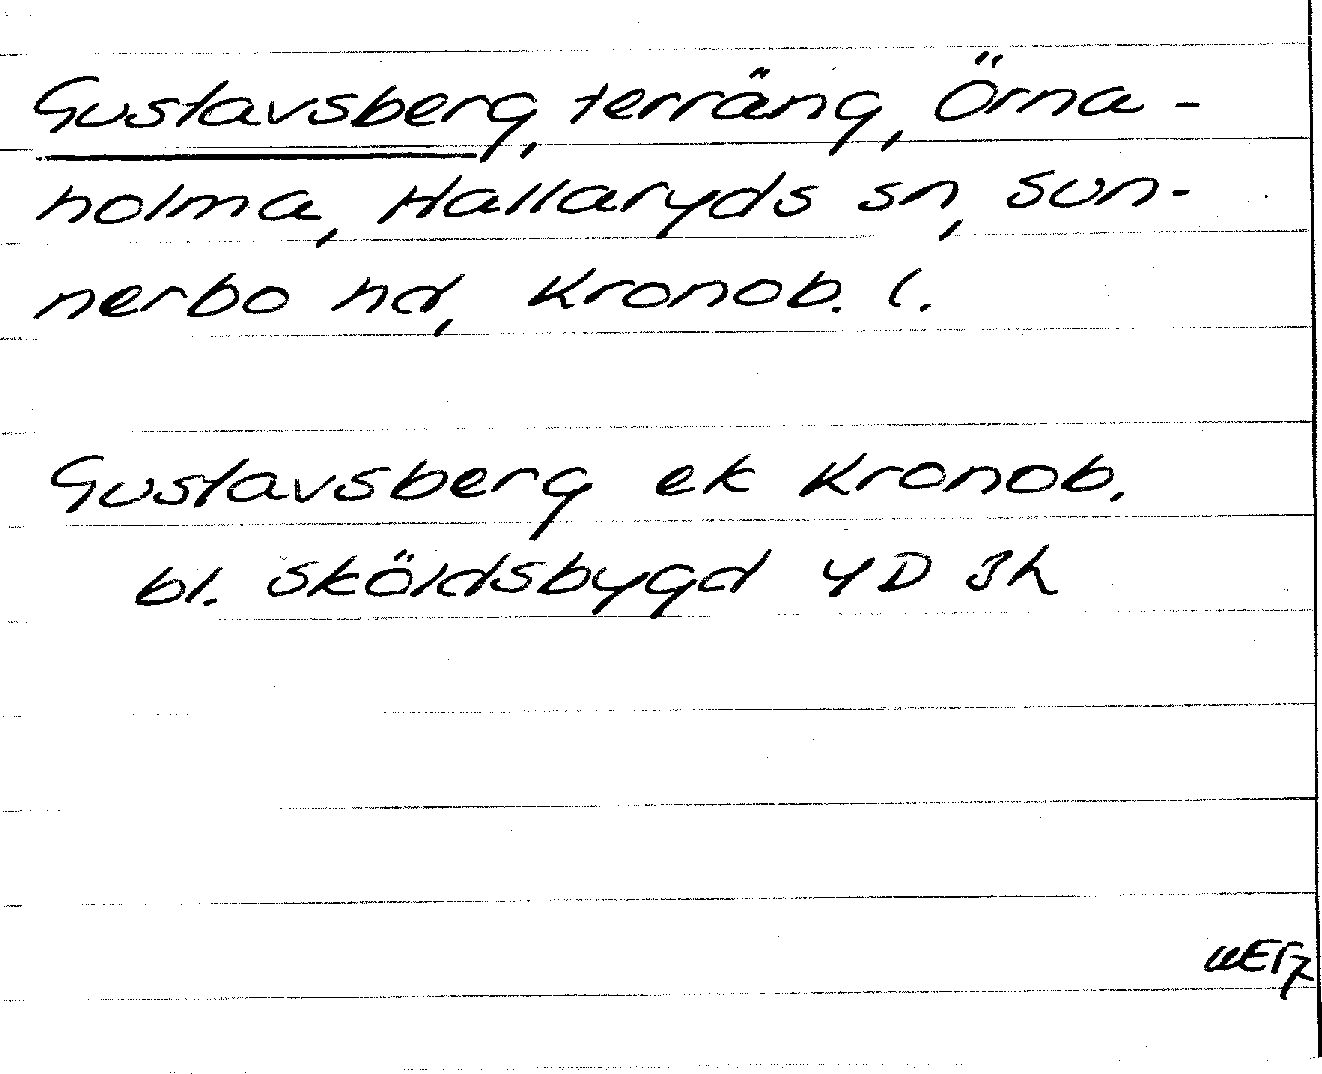 Gustavsberg, terräng, Örna-
holma, Hallaryds sn, Sun-
nerbo hd, Kronob. l.
Gustavsberg ek Kronob.
bl. Sköldsbygd 4D 3h